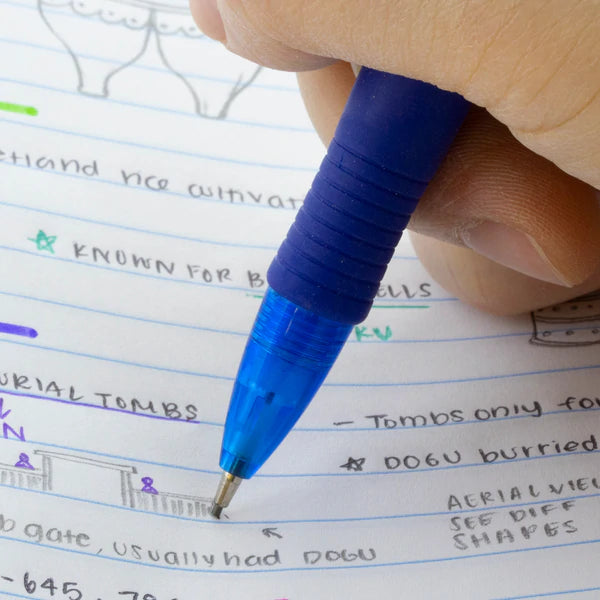 rice cultivat
KNOWN FOR B ELLS
KU
URIAL TOMBS
L
N
- Tombs only fo
DOGU burried
AERIAL VIE
SEE DIFF
SHAPES
b gate, usually had DOGU
-645